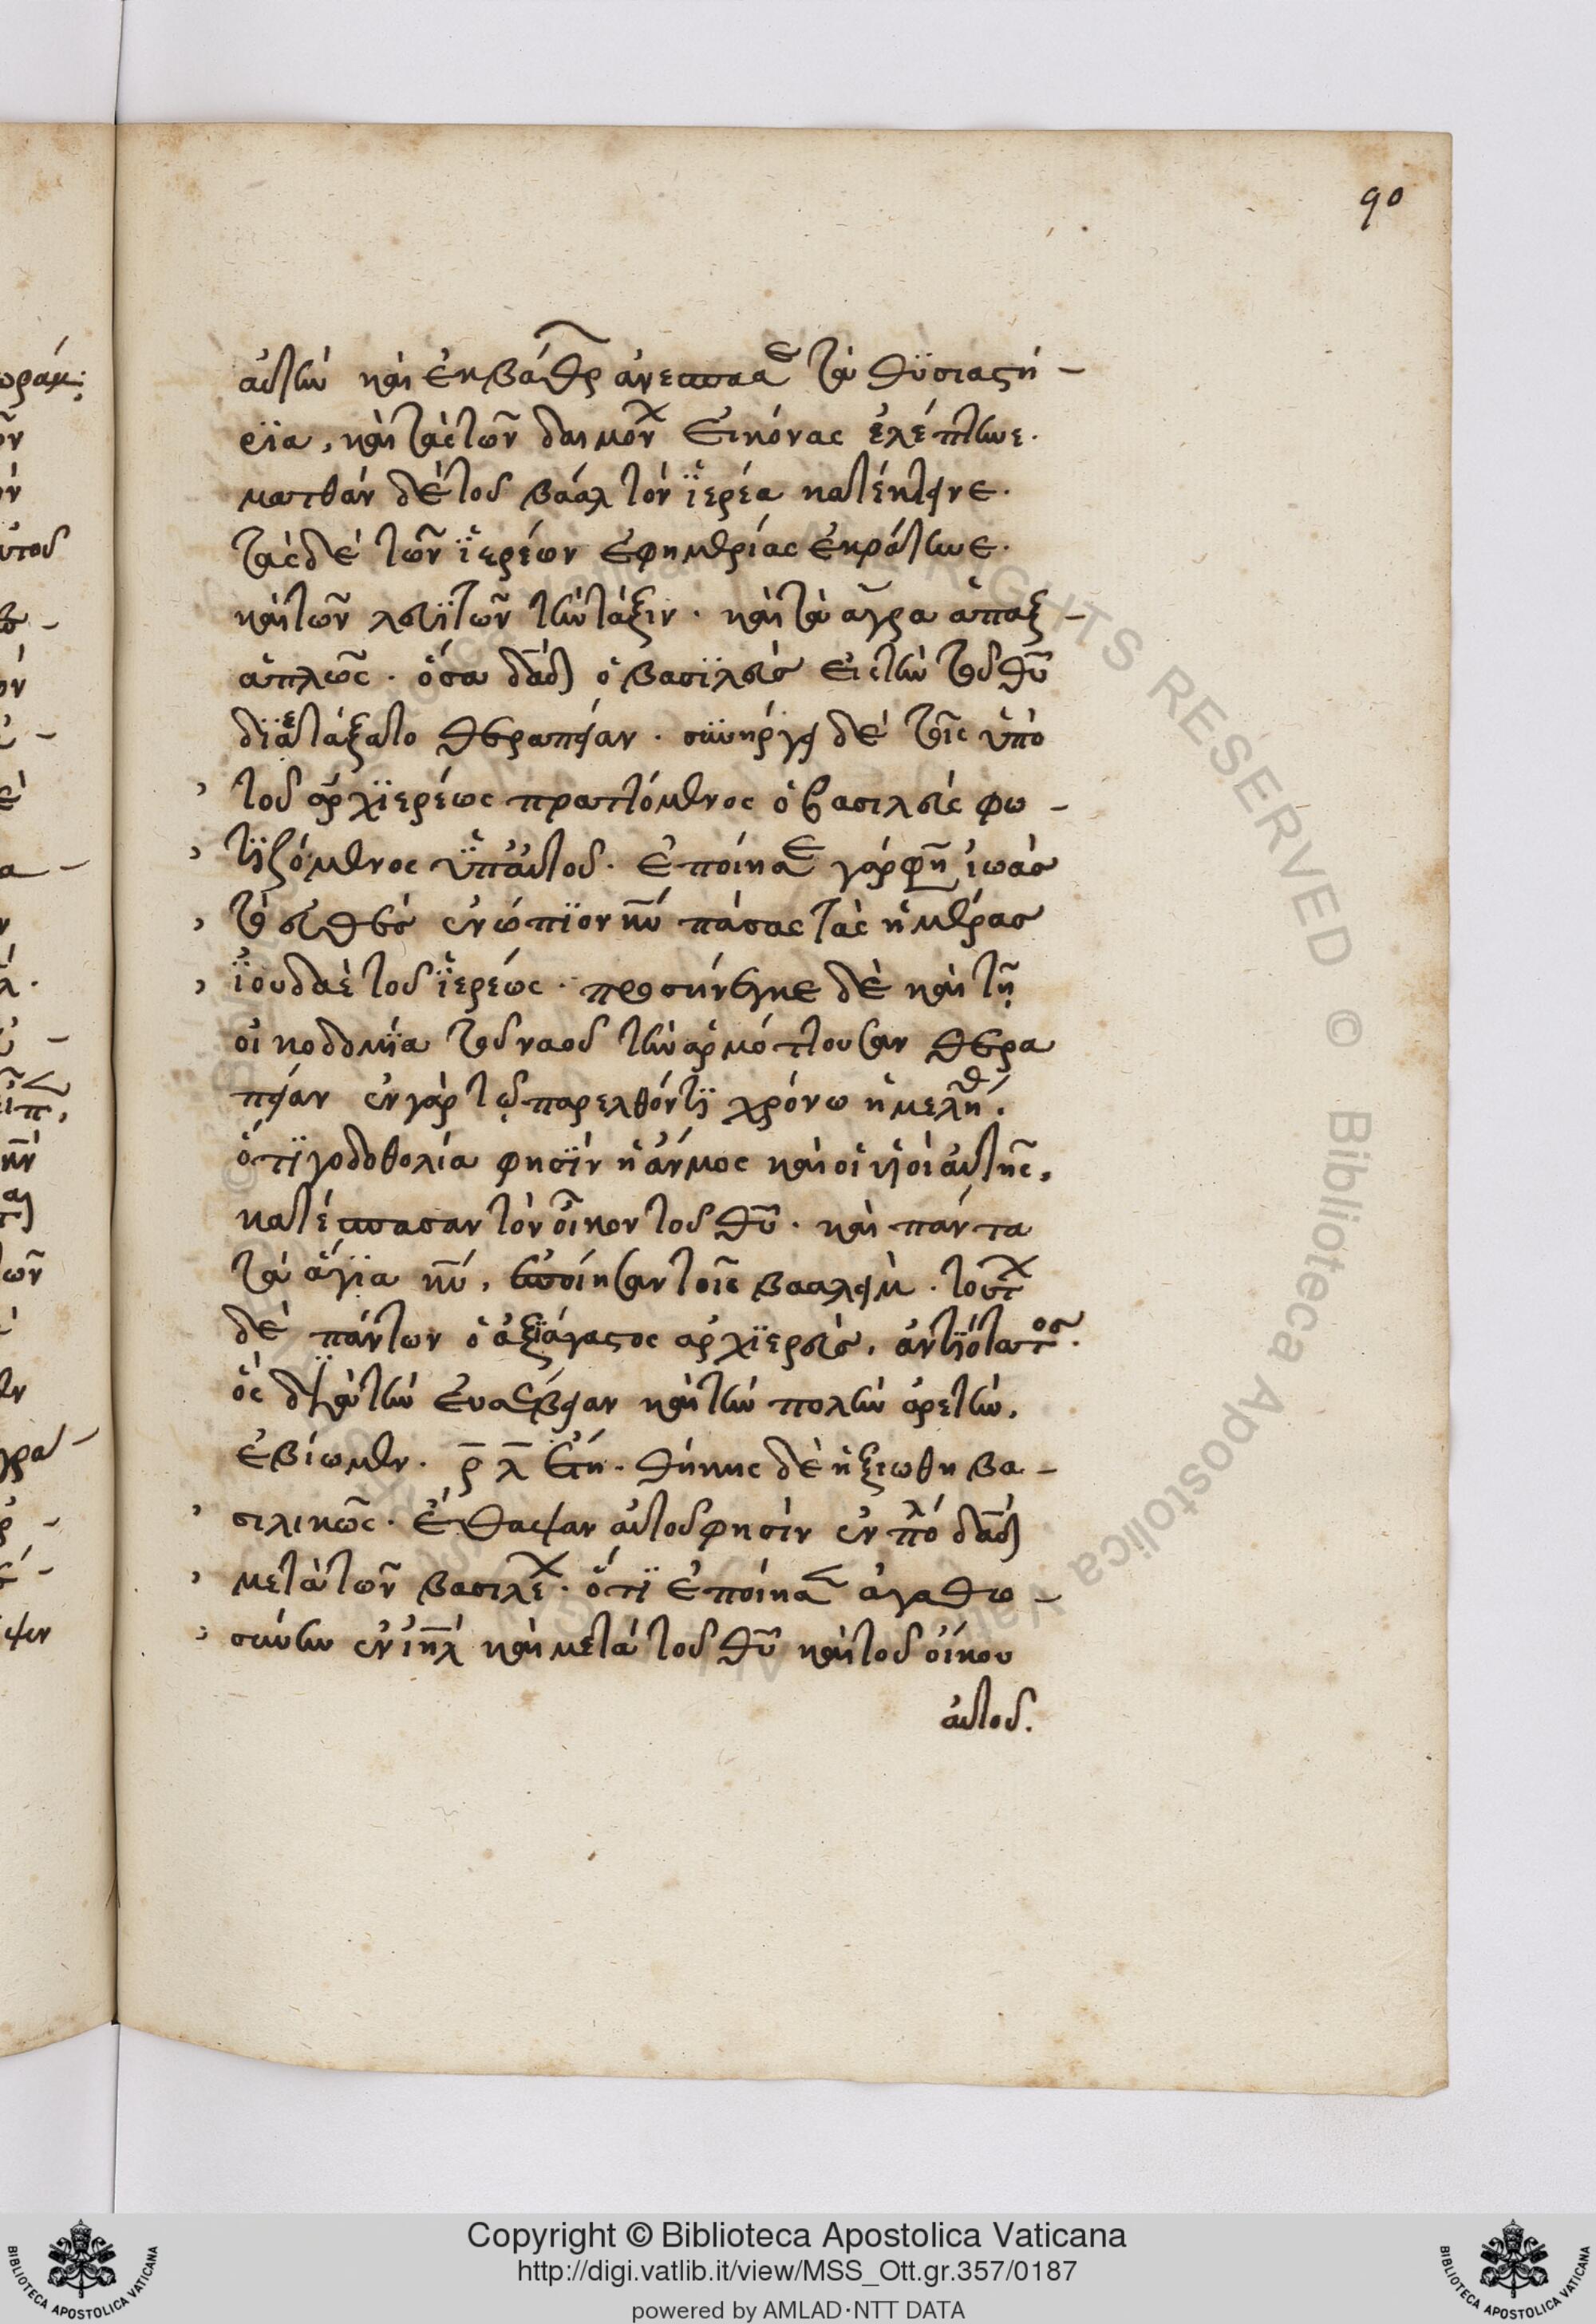 90
αὐτὴν καὶ ἐκ βάθρ ἀνέσπασε τὰ θϋσιαστή-
ρϊα, καὶ τὰς τῶν δαιμόν εἰκόνας ἐλέπτυνε.
ματθὰν δὲ τοῦ βάαλ τὸν ϊερέα κατέκτεινε.
τὰς δὲ τῶν ϊερέων ἐφημερίας ἐκράτυνε.
καὶ τῶν λευϊτῶν τὴν τάξιν. καὶ τὰ ἄλλα ἅπαξ-
ἁπλῶς. ὅσα δᾱδ ὁ βασϊλεὺσ εἰς τὴν τοῦ θῡ
διετάξατο θεραπείαν. συνήργει δὲ τοῖς ὑπὸ
τοῦ ἀρχϊερέως πραττόμενος ὁ βασιλεὺς φω-
τϊζόμενος ὑπ' αὐτοῦ. ἐποίησε γάρ φη ἰωὰσ
τὸ εὐθὲσ ἐνώπϊον κ̅υ̅ πάσας τὰς ἡμέρασ
ϊουδαὲ τοῦ ϊερέως. προσήνεγκε δὲ καὶ τῇ
οἰκοδομϊα τοῦ ναοῦ τὴν ἁρμόττουσαν θερα
πείαν ἐν γὰρ τῷ παρελθόντϊ χρόνω ἠμελήθ.
ὅτϊ γοδοθολία φησὶν ἡ ἄνομος καὶ οἱ υἱοὶ αὐτῆς.
κατέσπασαν τὸν οἶκον τοῦ θῡ. καὶ πάντα
τὰ ἅγϊα κ̅υ̅, ἐποίησαν τοῖς βααλείμ. τούτ
δὲ πάντων ὁ ἀξϊάγαστος ἀρχϊερεὺσ. ἀντϊότατοσ.
ὃς διὰ τὴν εὐσέβειαν καὶ τὴν πολλὴν ἀρετὴν.
ἐβίωσεν. ρ̅λ̅ ἔτη. θήκης δὲ ἠξιώθη βα-
σιλικῶς. ἔθαψαν αὐτοῦ φησὶν ἐν πόλ δᾱδ
μετὰ τῶν βασιλέ. ὅτϊ ἐποίησε ἀγαθω-
σύνην ἐν ἰ̅η̅λ̅ καὶ μετὰ τοῦ θῡ καὶ τοῦ οἴκου
αὐτοῦ.
Copyright © Biblioteca Apostolica Vaticana
http://digi.vatlib.it/view/MSS_Ott.gr.357/0187
powered by AMLAD·NTT DATA